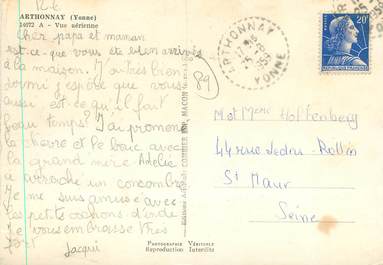 ARTHONNAY (Yonne)
14072 A - Vue aérienne
Cher papa et maman
est-ce que vous ete bien arrivés
à la maison. J'ai tres bien
dormi j'espère que vous
aussi est-ce qu'il fait
beau temps? J'ai promené
la chèvre et le bouc avec
la grand mère. Adélie
a arraché un concombre
Je me suis amusé avec
les petits cochons d'inde
Je vous embrasse très
fort Jacqui
89
ARTHONNAY
YONNE
20F
Mr et Mme Hottenberg
44 rue Ledru-Rollin
St Maur
Seine
PHOTOGRAPHIE VÉRITABLE
Reproduction Interdite